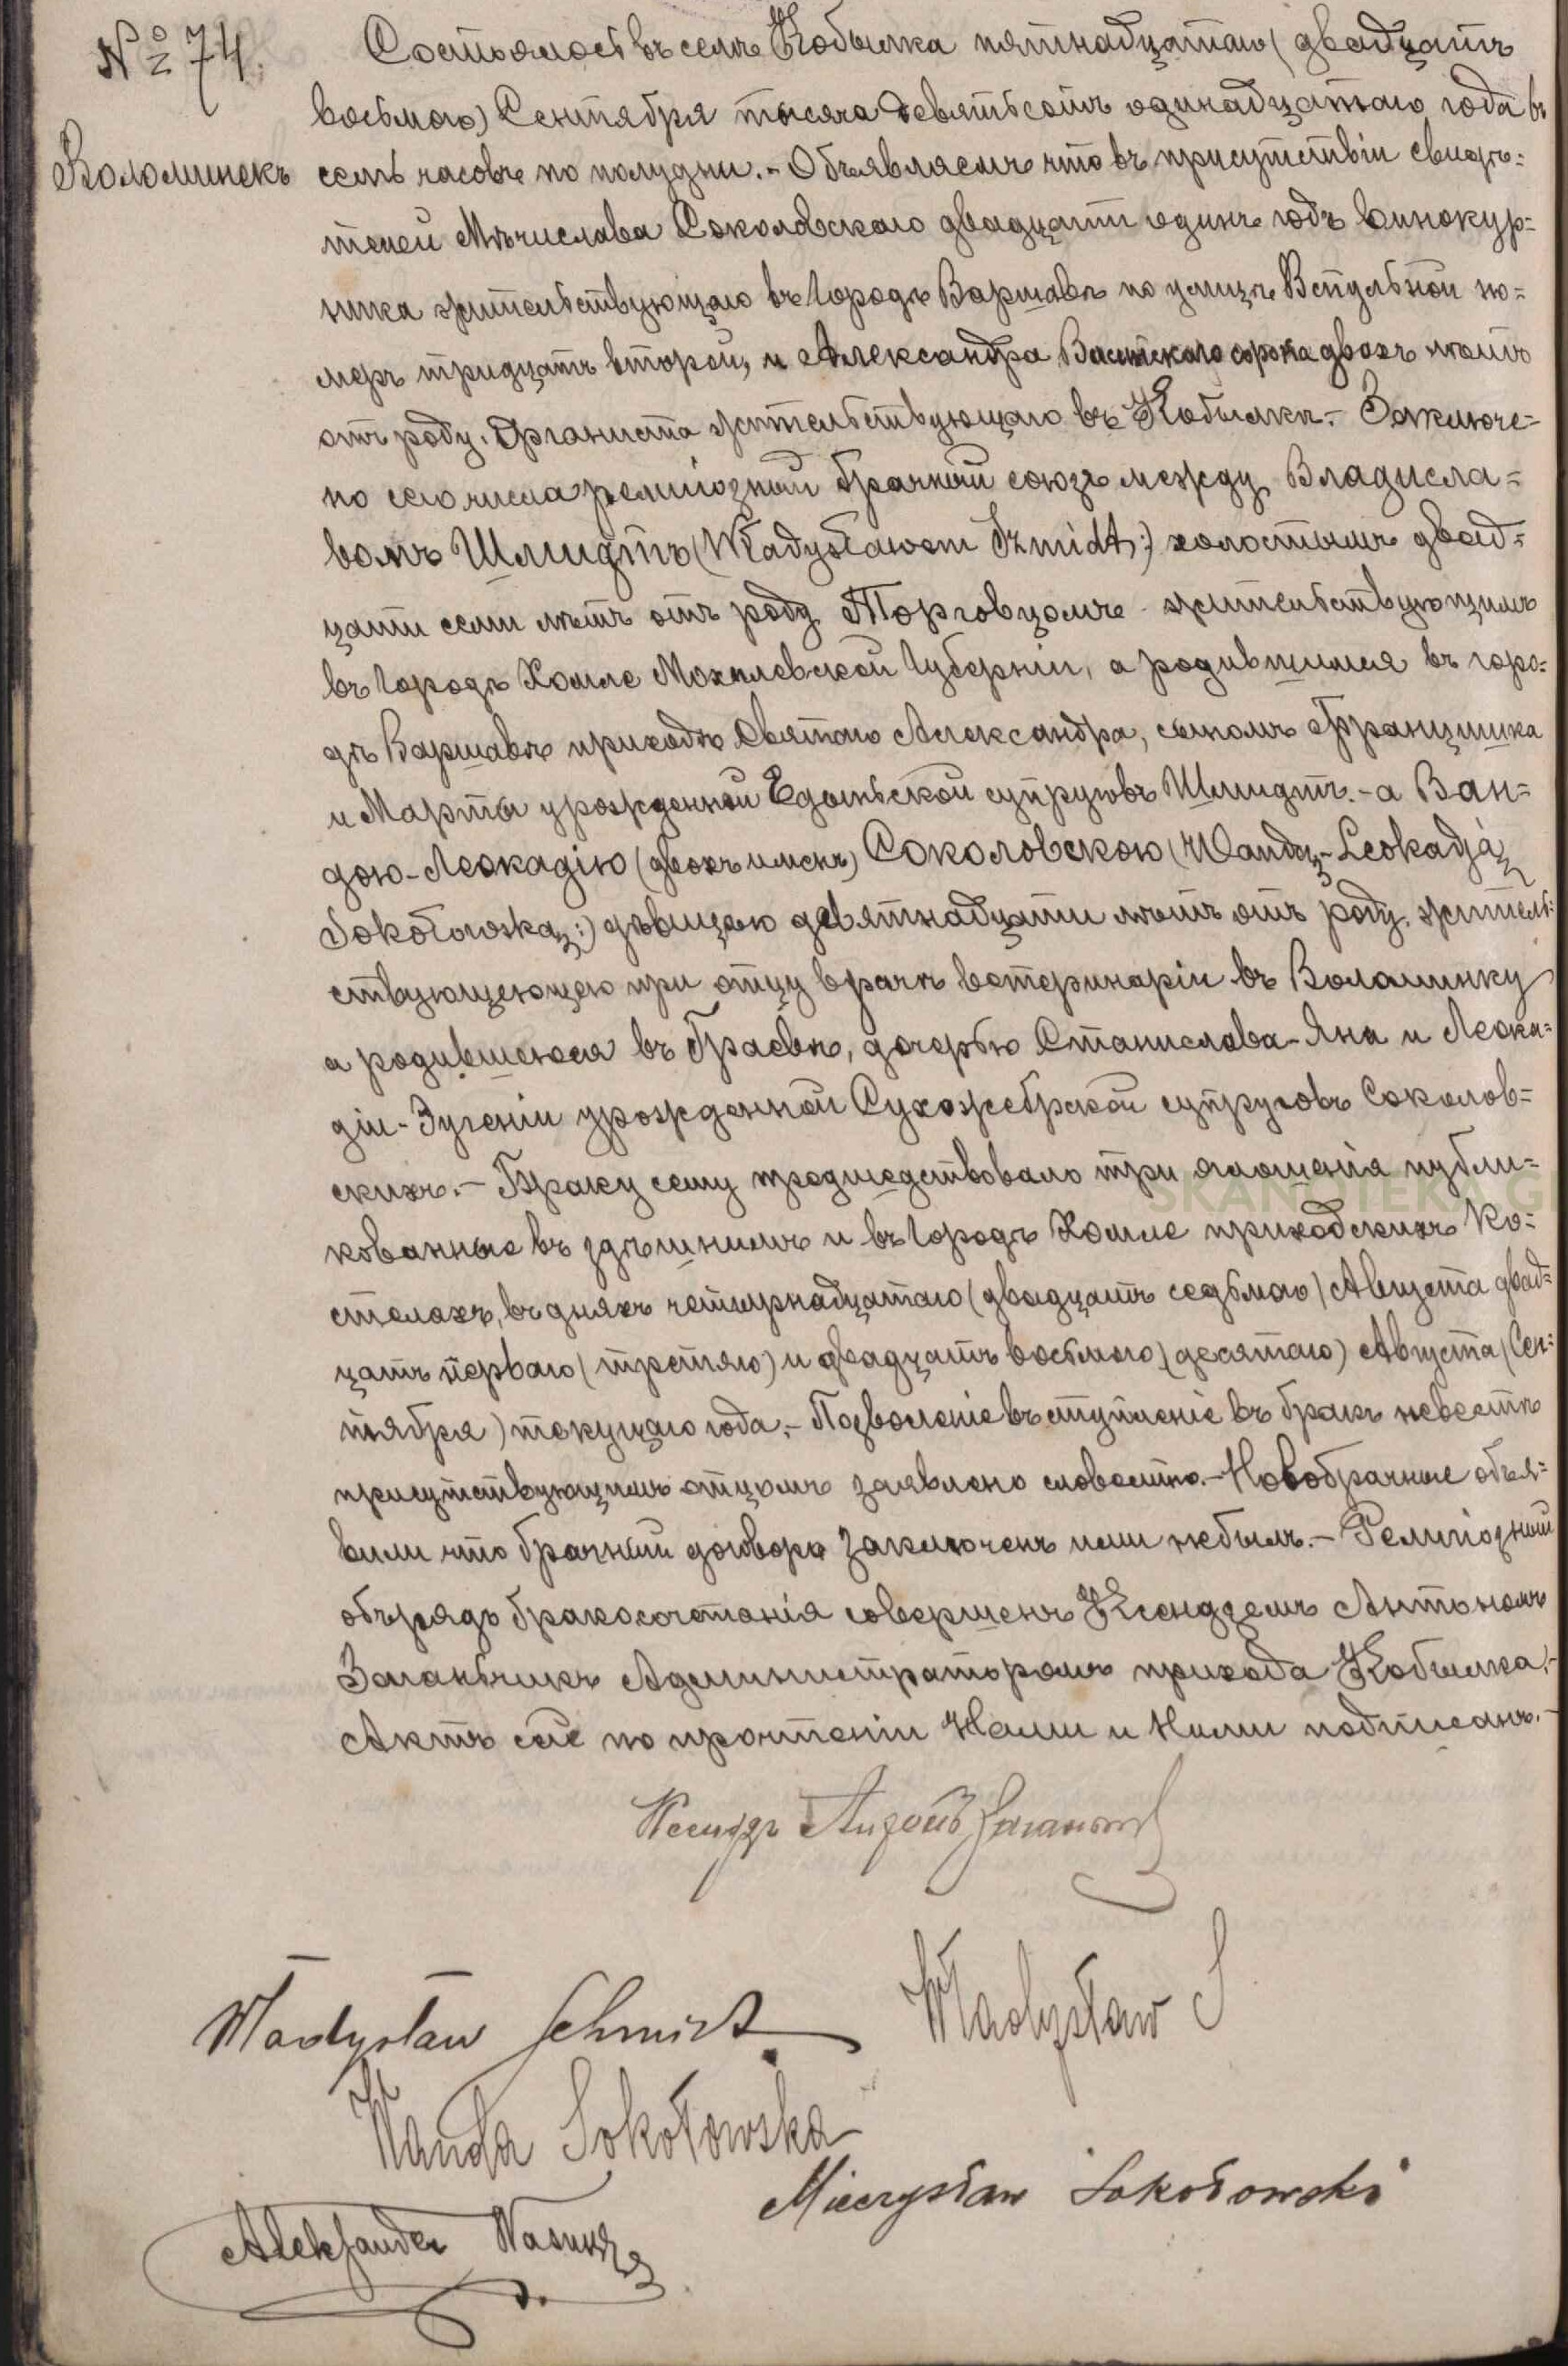 № 74.
Воломинекъ
Состоялось въ селе Кобылка пятнадцатаго (двадцать
восьмаго) Сентября тысяча девятьсотъ одинадцатаго года въ
семь часовъ по полудни.- Объявляемъ что въ присутствіи свидѣ=
телей Мѣчислава Соколовскаго двадцати одинъ годъ винокур=
ника жительствующаго въ городѣ Варшавѣ по улицѣ но=
меръ тридцать второй, и Александра сорока двохъ лѣтъ
отъ роду. Органиста жительствующаго въ Кобылкѣ.- Заключе=
но сего числа религіозный брачный союзъ между Владисла=
вомъ Шмидтъ (Władysławem Szmidt:) холостымъ двад=
цати семи лѣтъ отъ роду Торговцомъ жительствующимъ
въ городѣ Хомле Мохилевской Губерніи, а родившимся въ горо=
дѣ Варшавѣ приходѣ Святаго Александра, сыномъ Францишка
и Марты урожденной супруговъ Шмидтъ.- а Ван=
дою-Леокадію (двохъ именъ) Соколовскою (Wandą-Leokadją
Sokołowską:) дѣвицею девятнадцати лѣтъ отъ роду, житель=
ствующеющею при отцу врачѣ ветеринаріи въ Воломинку
а родившеюся въ Граевѣ, дочерью Станислава-Яна и Леока=
діи-Эугеніи урожденной Сухожебрской супруговъ Соколов=
скихъ.- Браку сему предшедствовало три оглошенія публи=
кованные въ здѣшнимъ и въ городѣ Хомле приходскихъ Ко=
стелахъ, въ дняхъ четырнадцатаго (двадцать седьмаго) Августа двад=
цать перваго (третяго) и двадцать восьмаго (десятаго) Августа (Сен=
тября) текущаго года.- Позволеніе въступленіе въ бракъ невестѣ
присутствующимъ отцомъ заявлено словестно.- Новобрачные объя=
вили что брачный договоръ заключенъ ими небылъ.- Религіозный
обърядъ бракосочетанія совершенъ Ксендземъ Антономъ
Заганьчикъ Администраторомъ прихода Кобылка.-
Актъ сей по прочтеніи Нами и Ними подписанъ.-
Ксендзъ
Władysław Schmidt
Władysław S
Wanda Sokołowska
Mieczysław Sokołowski
Aleksander
SKANOTEKA.GE